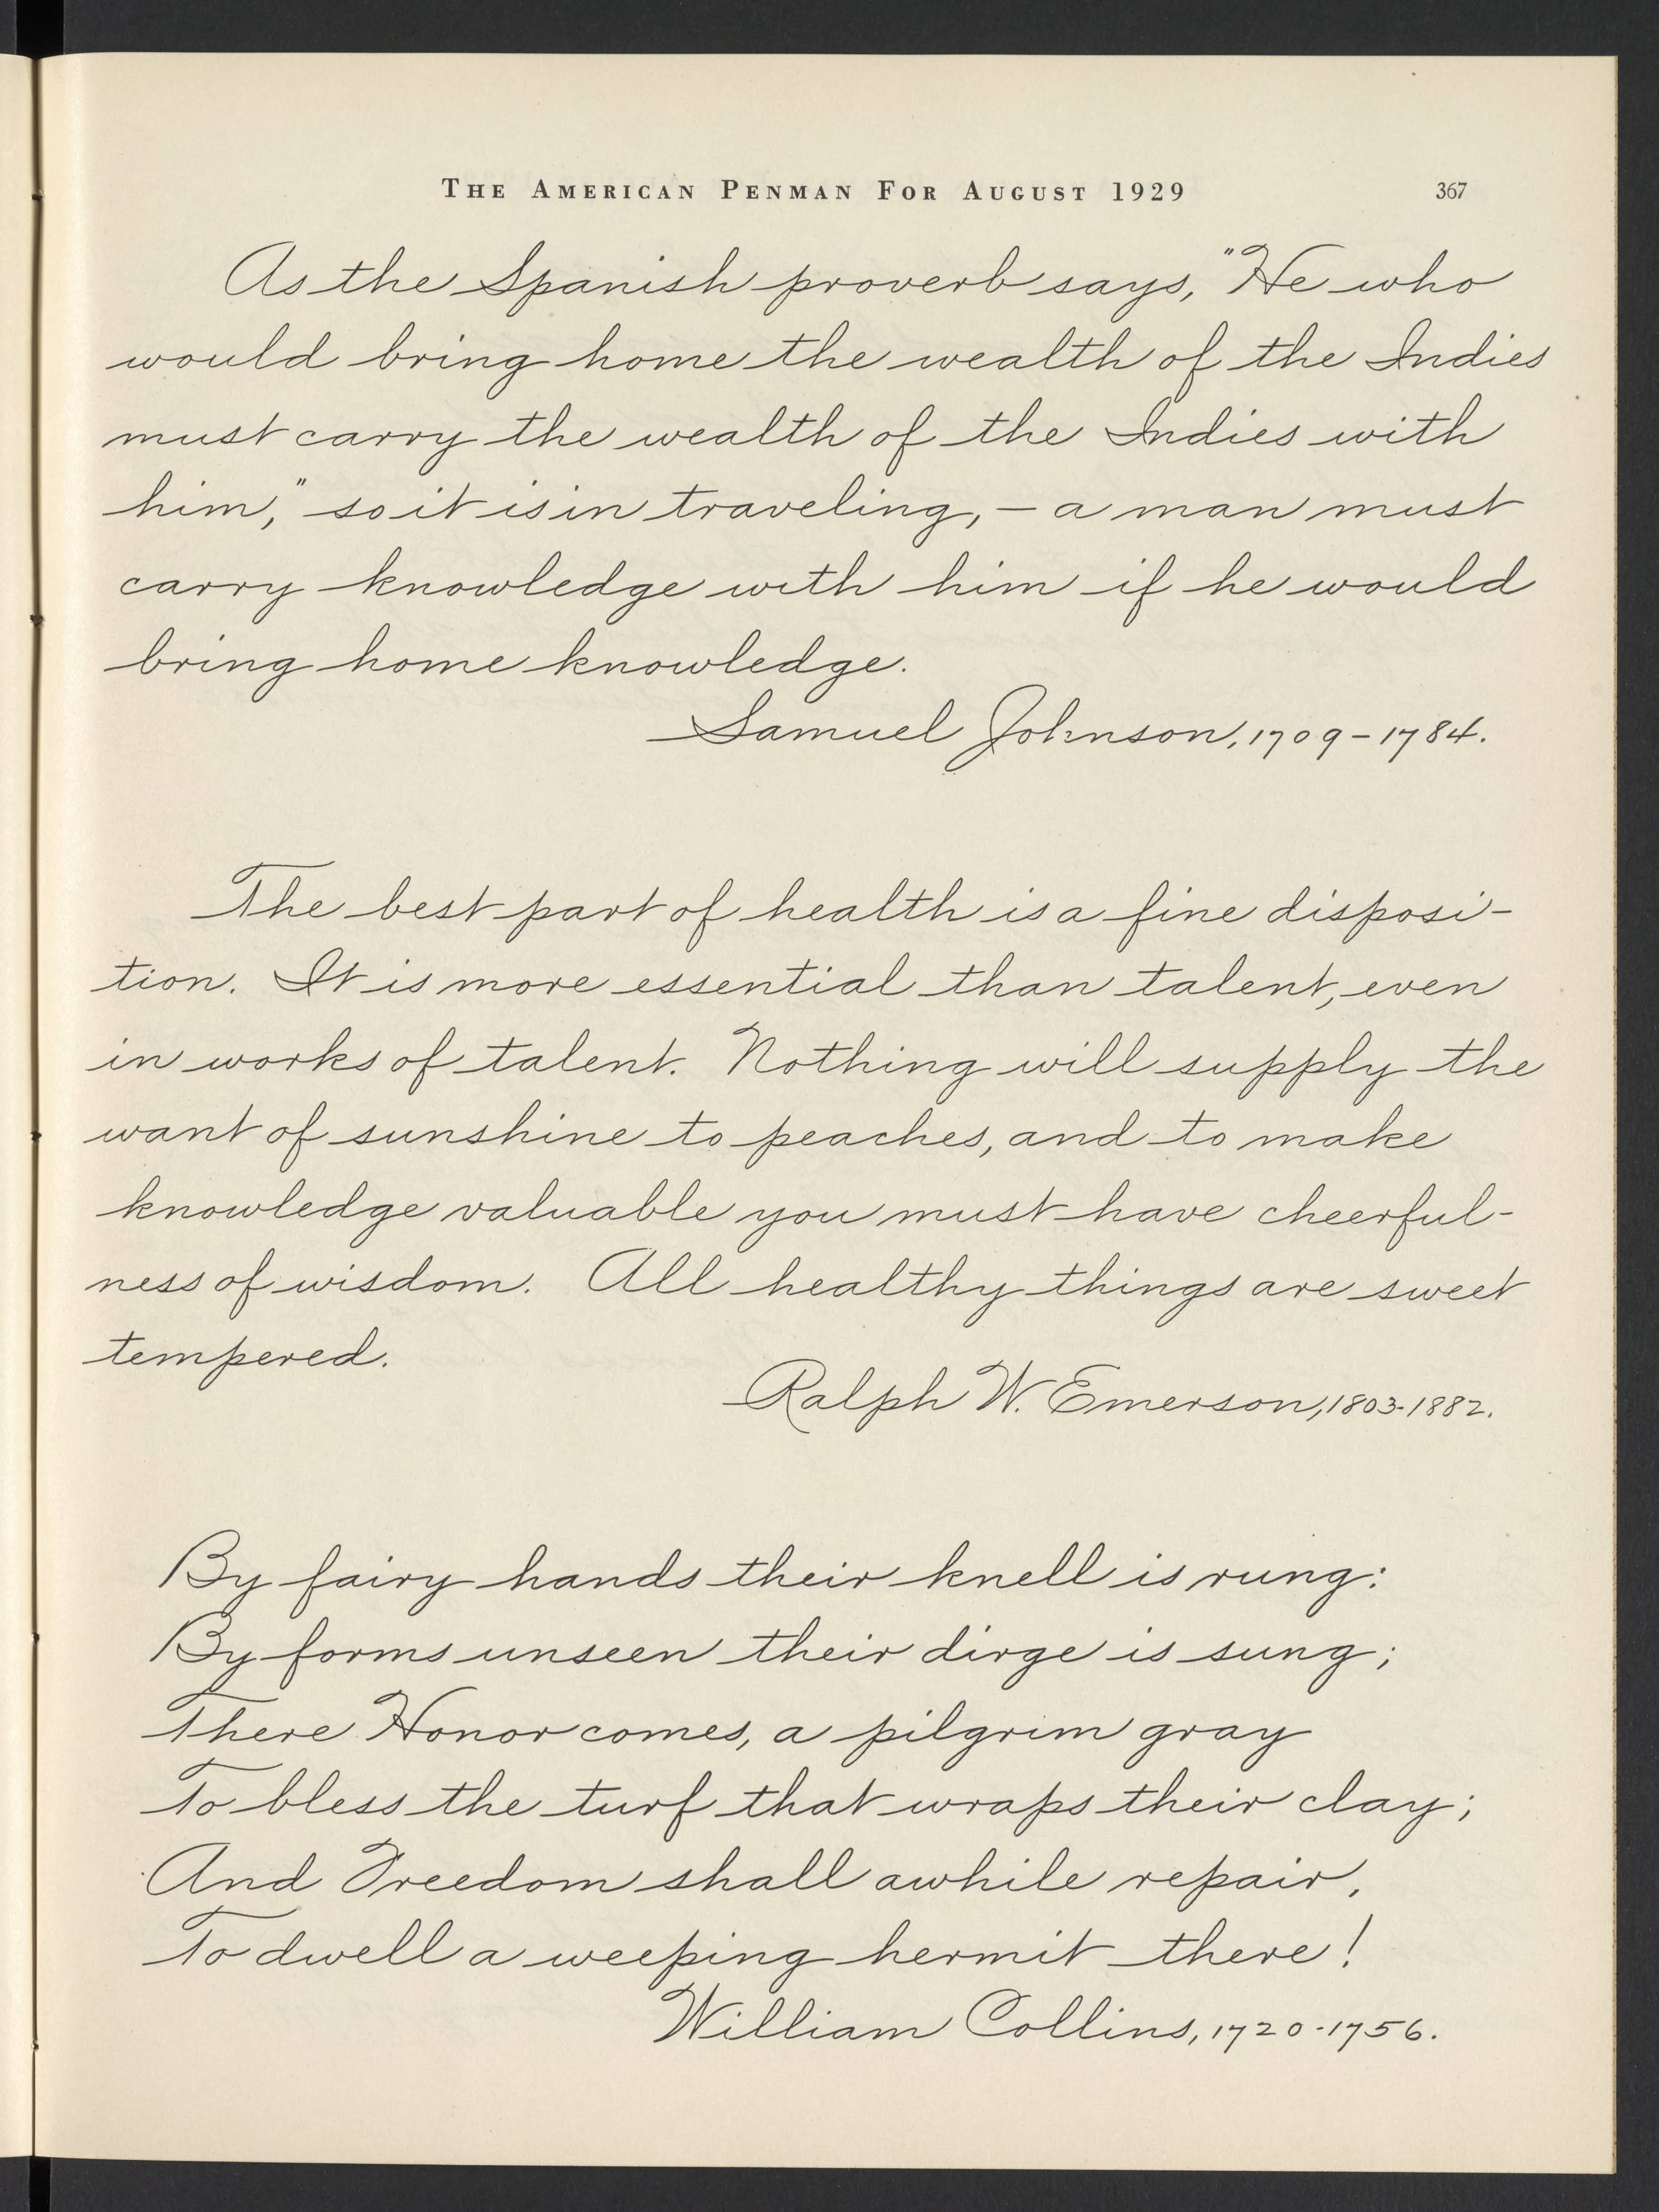 THE AMERICAN PENMAN FOR AUGUST 1929 367
As the Spanish proverb says, "He who
would bring home the wealth of the Indies
must carry the wealth of the Indies with
him," so it is in traveling, – a man must
carry knowledge with him if he would
bring home knowledge.
Samuel Johnson, 1709 – 1784.
The best part of health is a fine disposi-
tion. It is more essential than talent, even
in works of talent. Nothing will supply the
want of sunshine to peaches, and to make
knowledge valuable you must have cheerful-
ness of wisdom. All healthy things are sweet
tempered.
Ralph W. Emerson, 1803-1882.
By fairy hands their knell is rung:
By forms unseen their dirge is sung;
There Honor comes, a pilgrim gray
To bless the turf that wraps their clay;
And Freedom shall awhile repair,
To dwell a weeping hermit there!
William Collins, 1720-1756.